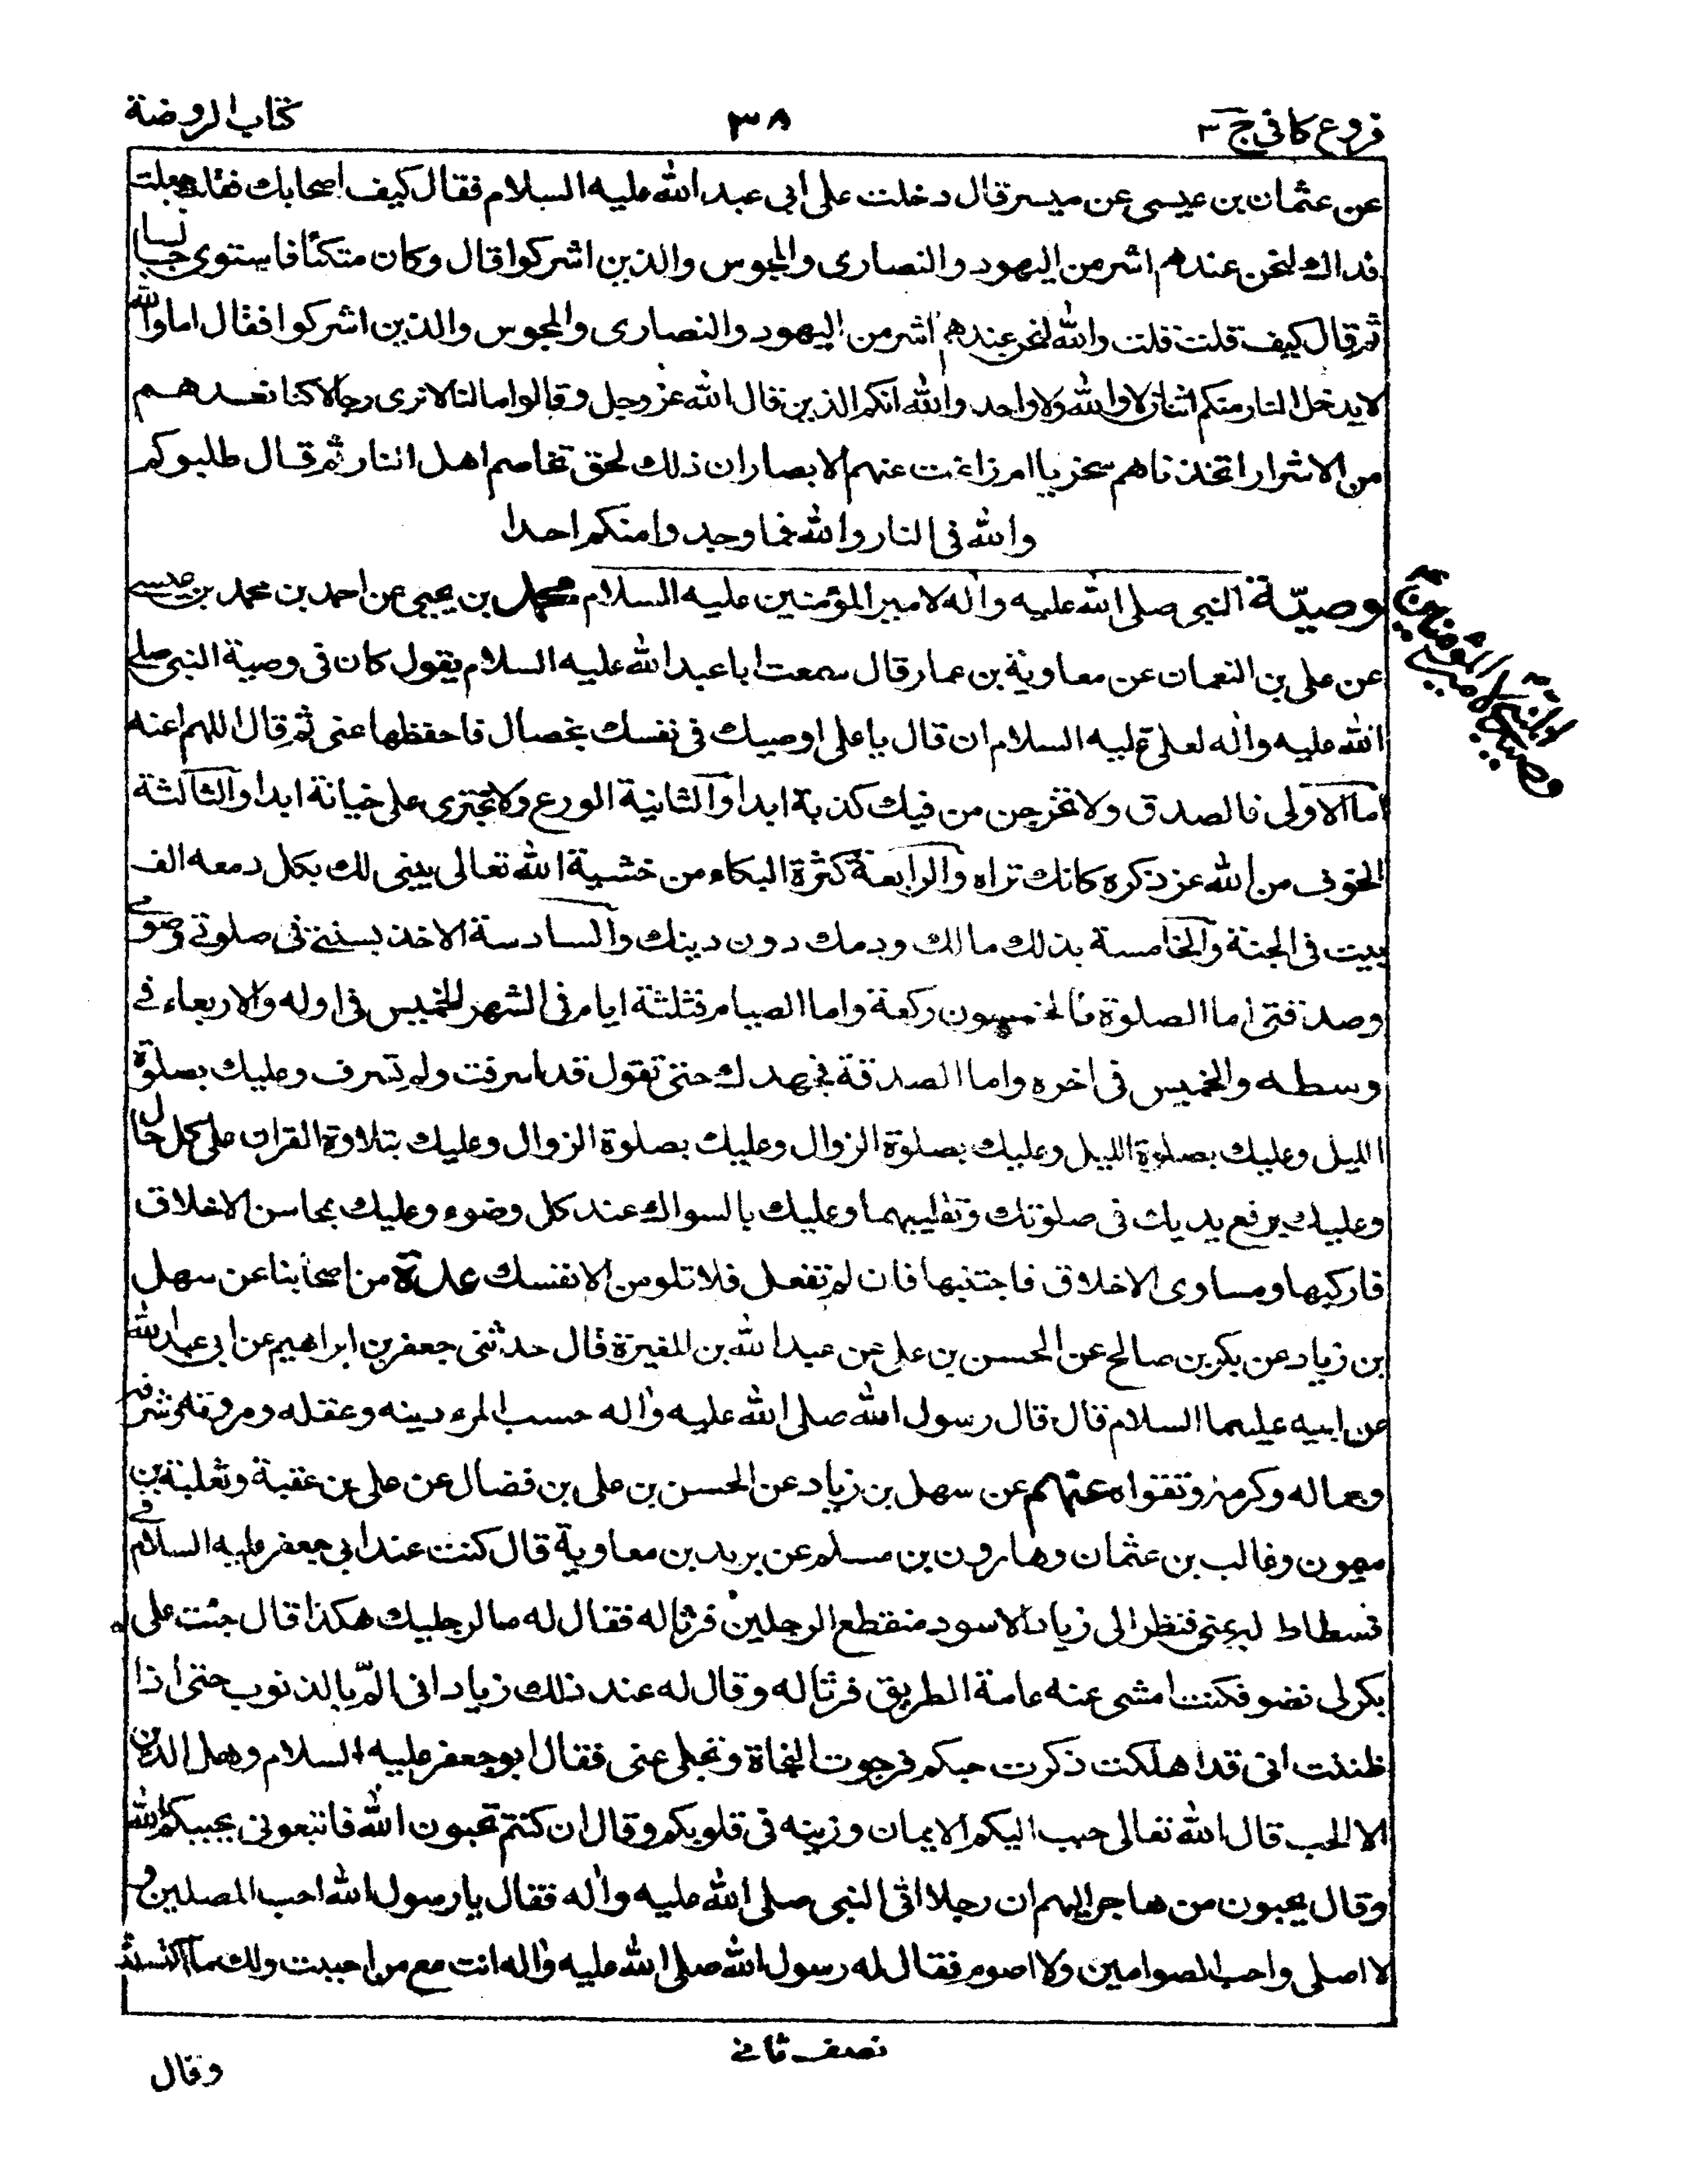 فروع كافى ج ٣
٣٨
كتاب الروضة
عن عثمان بن عيسى عن ميسر قال دخلت على ابى عبد الله عليه السلام فقال كيف اصحابك فقلت جعلت
فداك لنحن عندهم اشر من اليهود والنصارى والمجوس والذين اشركوا قال وكان متكئا فاستوى جالسا
ثم قال كيف قلت قلت والله لنحن عندهم اشر من اليهود والنصارى والمجوس والذين اشركوا فقال اما والله
لا يدخل النار منكم اثنان لا والله ولا واحد والله انكم الذين قال الله عز وجل وقالوا ما لنا لا نرى رجالا كنا نعدهم
من الاشرار اتخذناهم سخريا ام زاغت عنهم الابصار ان ذلك لحق تخاصم اهل النار ثم قال طلبوكم
والله فى النار والله فما وجدوا منكم احدا
وصيّة النبى صلى الله عليه واله لامير المؤمنين عليه السلام محمد بن يحيى عن احمد بن محمد بن عيسى
عن على بن النعمان عن معاوية بن عمار قال سمعت ابا عبد الله عليه السلام يقول كان فى وصية النبى صلى
الله عليه واله لعلى عليه السلام ان قال يا على اوصيك فى نفسك بخصال فاحفظها عنى ثم قال اللهم اعنه
اما الاولى فالصدق ولا تخرجن من فيك كذبة ابدا والثانية الورع ولا تجترى على خيانة ابدا والثالثة
الخوف من الله عز ذكره كانك تراه والرابعة كثرة البكاء من خشية الله تعالى يبنى لك بكل دمعه الف
بيت فى الجنة والخامسة بذلك مالك ودمك دون دينك والسادسة الاخذ بسنتى فى صلوتى وصومى
وصدقتى اما الصلوة فالخمسون ركعة واما الصيام فثلثة ايام فى الشهر الخميس فى اوله والاربعاء فى
وسطه والخميس فى اخره واما الصدقة فجهدك حتى تقول قد اسرفت ولم تسرف وعليك بصلوة
الليل وعليك بصلوة الليل وعليك بصلوة الزوال وعليك بصلوة الزوال وعليك بتلاوة القران على كل حال
وعليك برفع يديك فى صلوتك وتقليبهما وعليك بالسواك عند كل وضوء وعليك بمحاسن الاخلاق
فاركبها ومساوى الاخلاق فاجتنبها فان لم تفعل فلا تلومن الا نفسك عدة من اصحابنا عن سهل
بن زياد عن بكر بن صالح عن الحسن بن على عن عبد الله بن المغيرة قال حدثنى جعفر بن ابراهيم عن ابى عبد الله
عن ابيه عليهما السلام قال قال رسول الله صلى الله عليه واله حسب المرء دينه وعقله ومروته وشرفه
وجماله وكرمه وتقواه عنهم عن سهل بن زياد عن الحسن بن على بن فضال عن على بن عقبة وثعلبة بن
ميمون وغالب بن عثمان وهارون بن مسلم عن بريد بن معاوية قال كنت عند ابى جعفر عليه السلام فى
فسطاط له بمنى فنظر الى زياد الاسود منقطع الرجلين فرثا له فقال له ما لرجليك هكذا قال جئت على
بكر لى نضو فكنت امشى عنه عامة الطريق فرثا له وقال له عند ذلك زياد انى المّ بالذنوب حتى اذا
ظننت انى قد هلكت ذكرت حبكم فرجوت النجاة وتجلى عنى فقال ابو جعفر عليه السلام وهل الدين
الا الحب قال الله تعالى حبب اليكم الايمان وزينه فى قلوبكم وقال ان كنتم تحبون الله فاتبعونى يحببكم الله
وقال يحبون من هاجر اليهم ان رجلا اتى النبى صلى الله عليه واله فقال يا رسول الله احب المصلين و
لا اصلى واحب الصوامين ولا اصوم فقال له رسول الله صلى الله عليه واله انت مع من احببت ولك ما اكتسبت
نصف ثانے
وقال